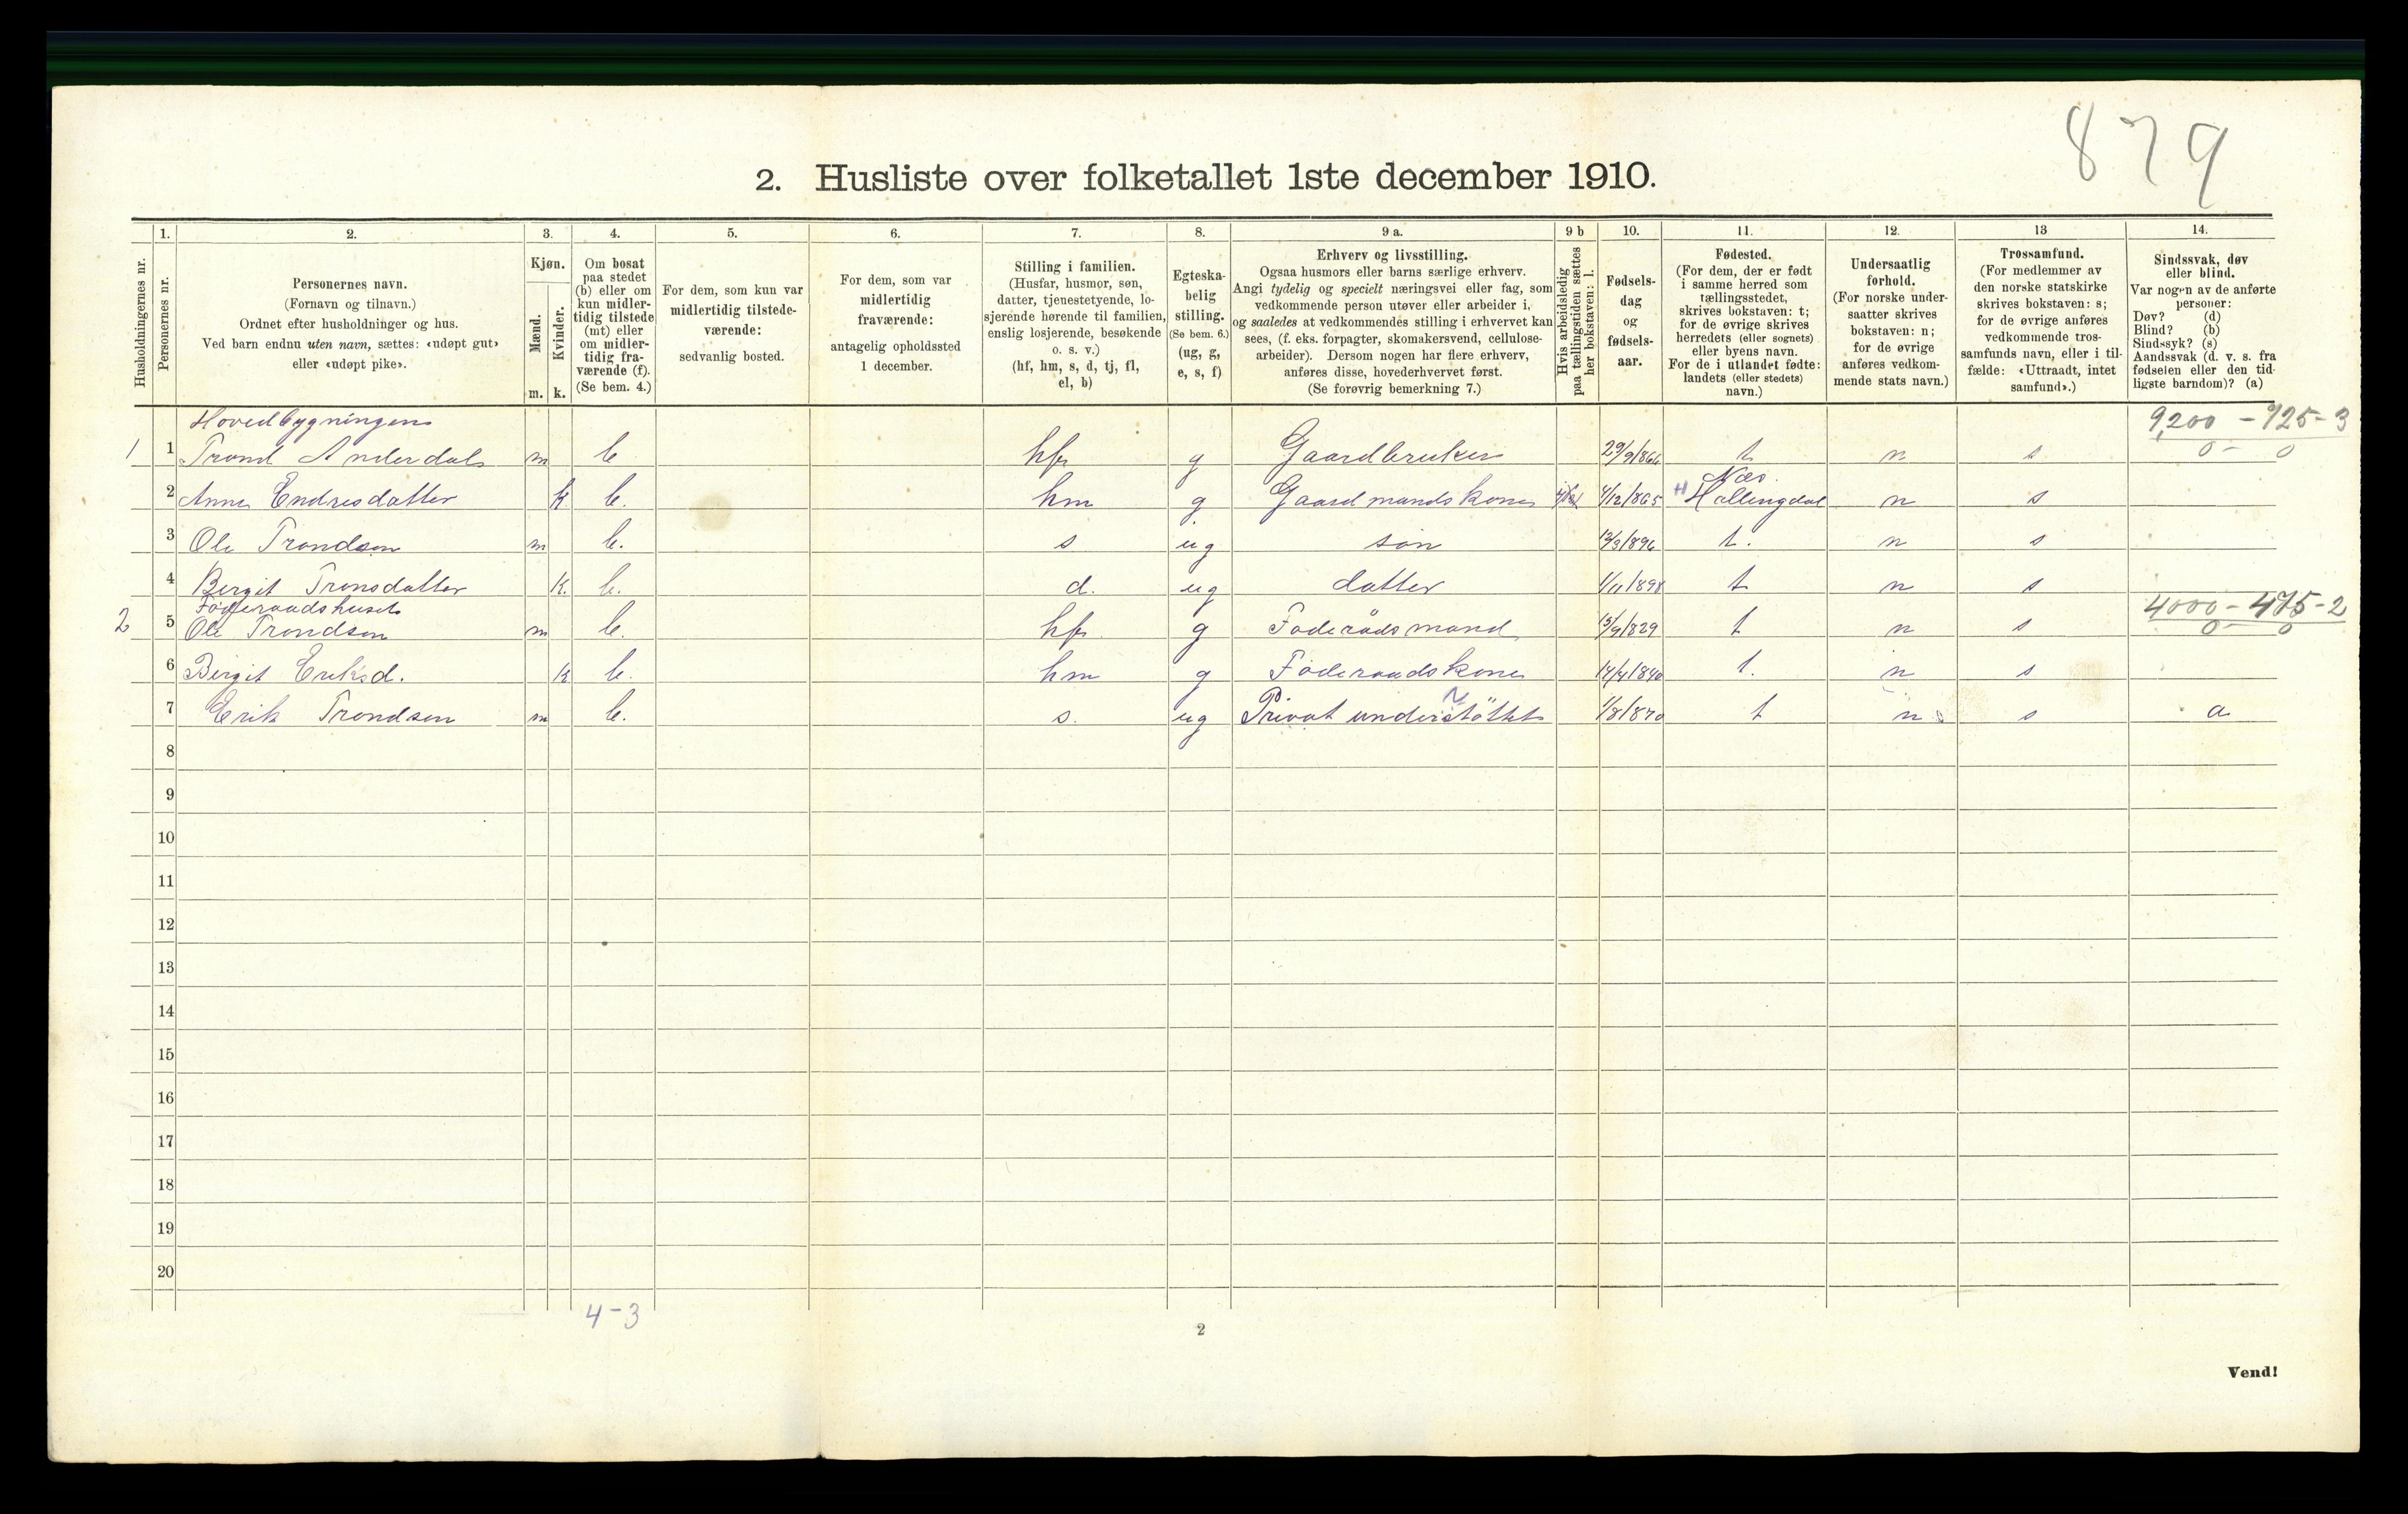 879
2. Husliste over folketallet 1ste december 1910.
Husholdningernes nr.
1. Personernes nr.
2. Personernes navn.
(Fornavn og tilnavn.)
Ordnet efter husholdninger og hus.
Ved barn endnu uten navn, sættes: «udøpt gut»
eller «udøpt pike».
3. Kjøn.
Mænd. m.
Kvinder. k.
4. Om bosat
paa stedet
(b) eller om
kun midler-
tidig tilstede
(mt) eller
om midler-
tidig fra-
værende (f).
(Se bem. 4.)
5. For dem, som kun var
midlertidig tilstede-
værende:
sedvanlig bosted.
6. For dem, som var
midlertidig
fraværende:
antagelig opholdssted
1 december.
7. Stilling i familien.
(Husfar, husmor, søn,
datter, tjenestetyende, lo-
sjerende hørende til familien,
enslig losjerende, besøkende
o. s. v.)
(hf, hm, s, d, tj, fl,
el, b)
8. Egteska-
belig
stilling.
(Se bem. 6.)
(ug, g,
e, s, f)
9 a. Erhverv og livsstilling.
Ogsaa husmors eller barns særlige erhverv.
Angi tydelig og specielt næringsvei eller fag, som
vedkommende person utøver eller arbeider i,
og saaledes at vedkommendes stilling i erhvervet kan
sees, (f. eks. forpagter, skomakersvend, cellulose-
arbeider). Dersom nogen har flere erhverv,
anføres disse, hovederhvervet først.
(Se forøvrig bemerkning 7.)
9 b Hvis arbeidsledig
paa tællingstiden sættes
her bokstaven: l.
10. Fødsels-
dag
og
fødsels-
aar.
11. Fødested.
(For dem, der er født
i samme herred som
tællingsstedet,
skrives bokstaven: t;
for de øvrige skrives
herredets (eller sognets)
eller byens navn.
For de i utlandet fødte:
landets (eller stedets)
navn.)
12. Undersaatlig
forhold.
(For norske under-
saatter skrives
bokstaven: n;
for de øvrige
anføres vedkom-
mende stats navn.)
13 Trossamfund.
(For medlemmer av
den norske statskirke
skrives bokstaven: s;
for de øvrige anføres
vedkommende tros-
samfunds navn, eller i til-
fælde: «Uttraadt, intet
samfund».)
14. Sindssvak, døv
eller blind.
Var nogen av de anførte
personer:
Døv? (d)
Blind? (b)
Sindssyk? (s)
Aandssvak (d. v. s. fra
fødselen eller den tid-
ligste barndom)? (a)
Hovedbygningen 9,200 - 725 - 3
1 1 Trond Anderdal m b hf g Gaardbruker 29/9/866 t n s 0 - 0
Næs
2 Anne Endresdatter k b. hm g Gaardmandskone 4/12/865 Hallingdal n s
3 Ole Trondsøn m b. s ug søn 12/3/896 t. n s
4 Bergit Tronsdatter k. b. d. ug datter 1/11/898 t n s
Føderaadshuset 4000 - 475 - 2
2 5 Ole Trondsen m b. hf g Føderåds mand 15/9/829 t n s 0 - 0
6 Birgit Eriksd. k b. hm g Føderaadskone 14/4/840 t. n s
7 Erik Trondsen m b. s. ug Privat understöttet 1/8/870 t n s a
8
9
10
11
12
13
14
15
16
17
18
19
20
4-3
2
Vend!